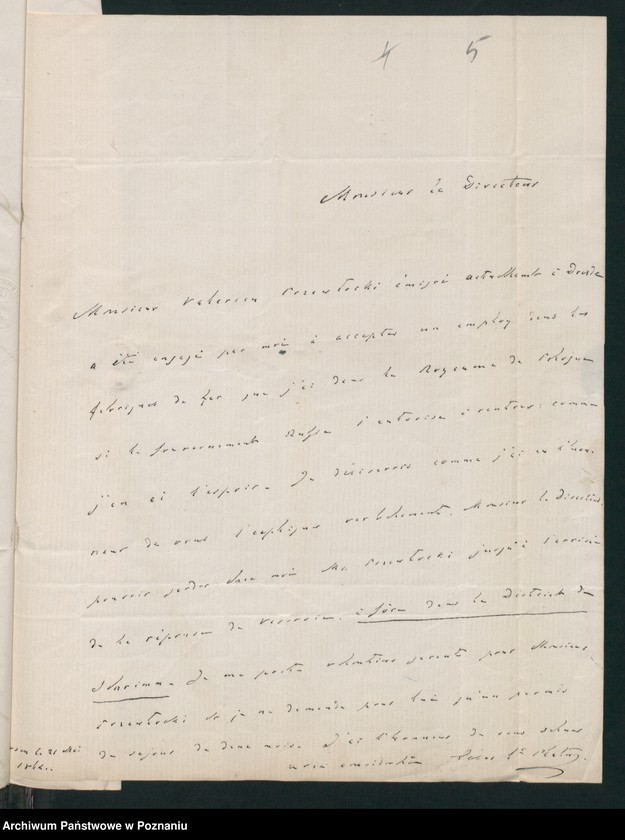 4 5
Monsieur le Directeur
Monsieur Valerien émigré actuellement à Dresde
a été engagé par moi à accepter un employ dans les
fabriques de fer que j'ai dans le Royaume de Pologne
si le Gouvernement Russe l'autorise à rentrer, comme
j'en ai l'espoir. Je désirerais comme j'ai eu l'hon-
neur de vous l'expliquer verbalement, Monsieur le Directeur,
pouvoir garder chez moi Mr jusqu'à l'arrivée
de la réponse de Varsovie, à dans le District de
Schrimm. Je me porte volontiers garant pour Monsieur
et je ne demande pour lui qu'un permis
de séjour de deux mois. J'ai l'honneur de vous saluer
le 21 Mai
186
avec considération
Archiwum Państwowe w Poznaniu